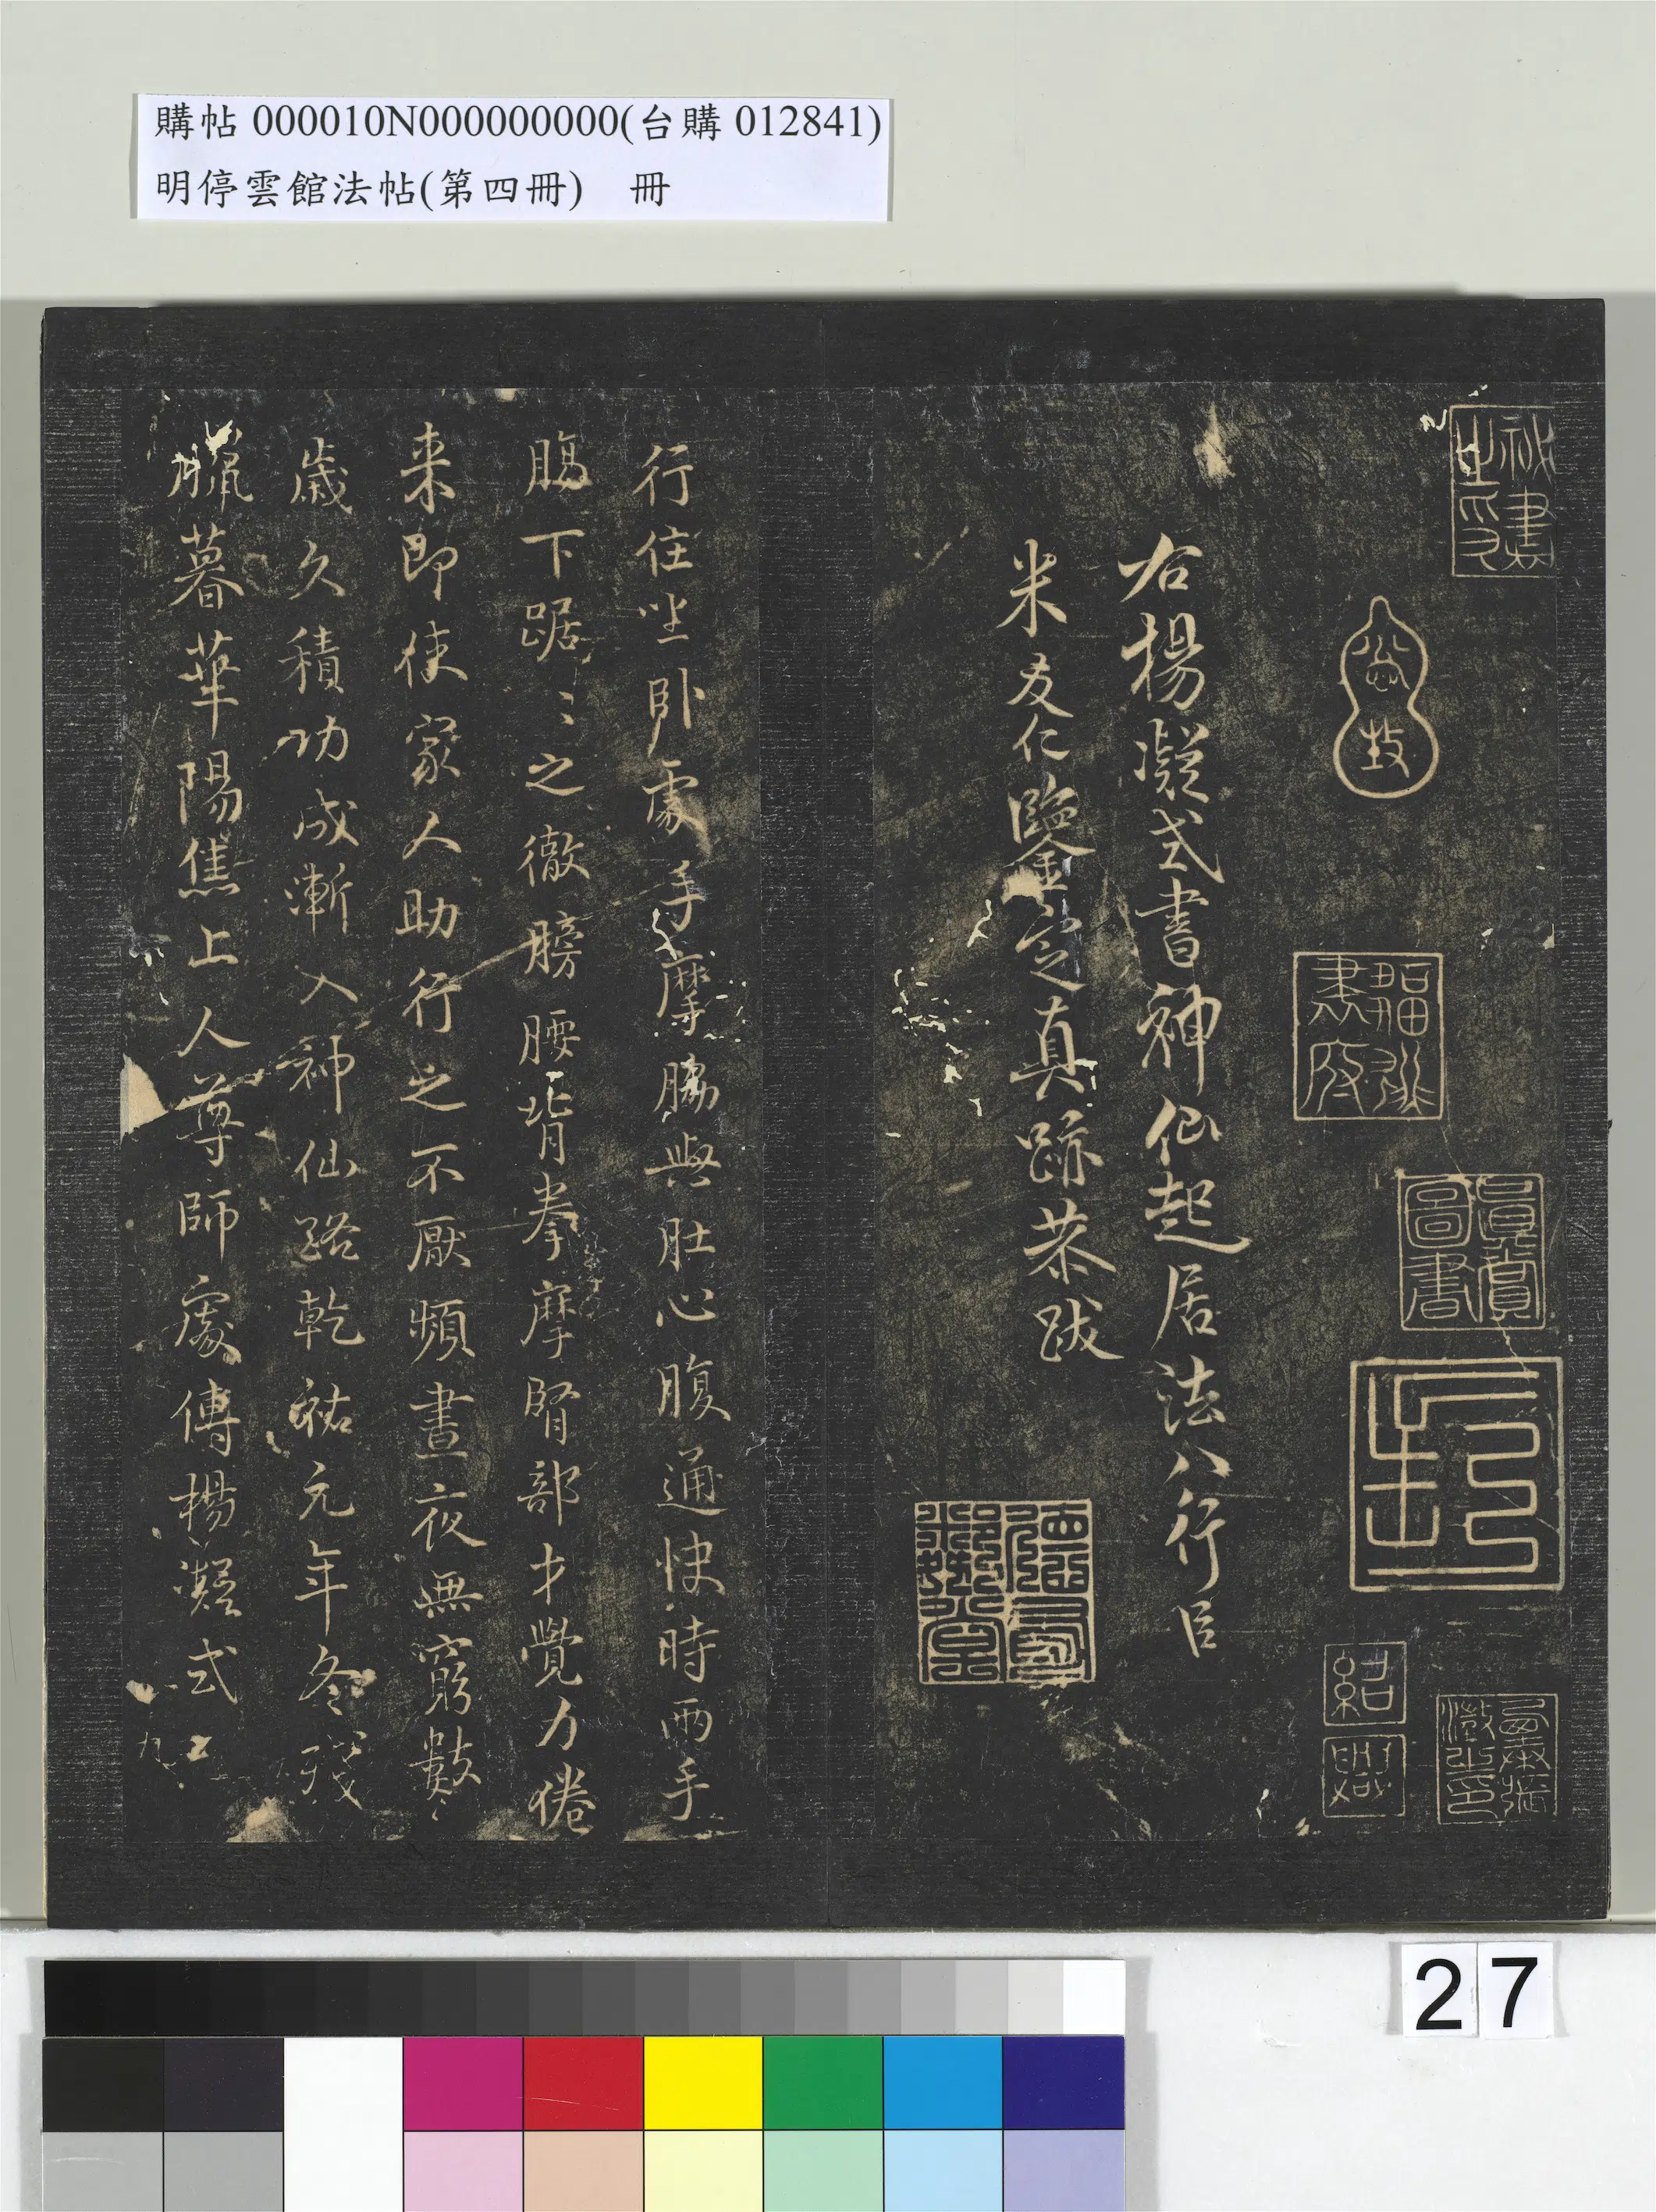 購帖 000010N000000000(台購 012841)
明停雲館法帖(第四冊) 冊
秘書之印
右楊凝式書神仙起居法八行臣
米友仁鑒定真跡恭跋
紹
興
行住坐卧處手摩脇與肚心腹通快時兩手
腸下踞〻之徹膀腰背拳摩腎部才覺力倦
来即使家人助行之不厭頻晝夜無窮數
歲久積功成漸入神仙路乾祐元年冬殘
臘暮華陽焦上人尊師處傳楊凝式
27